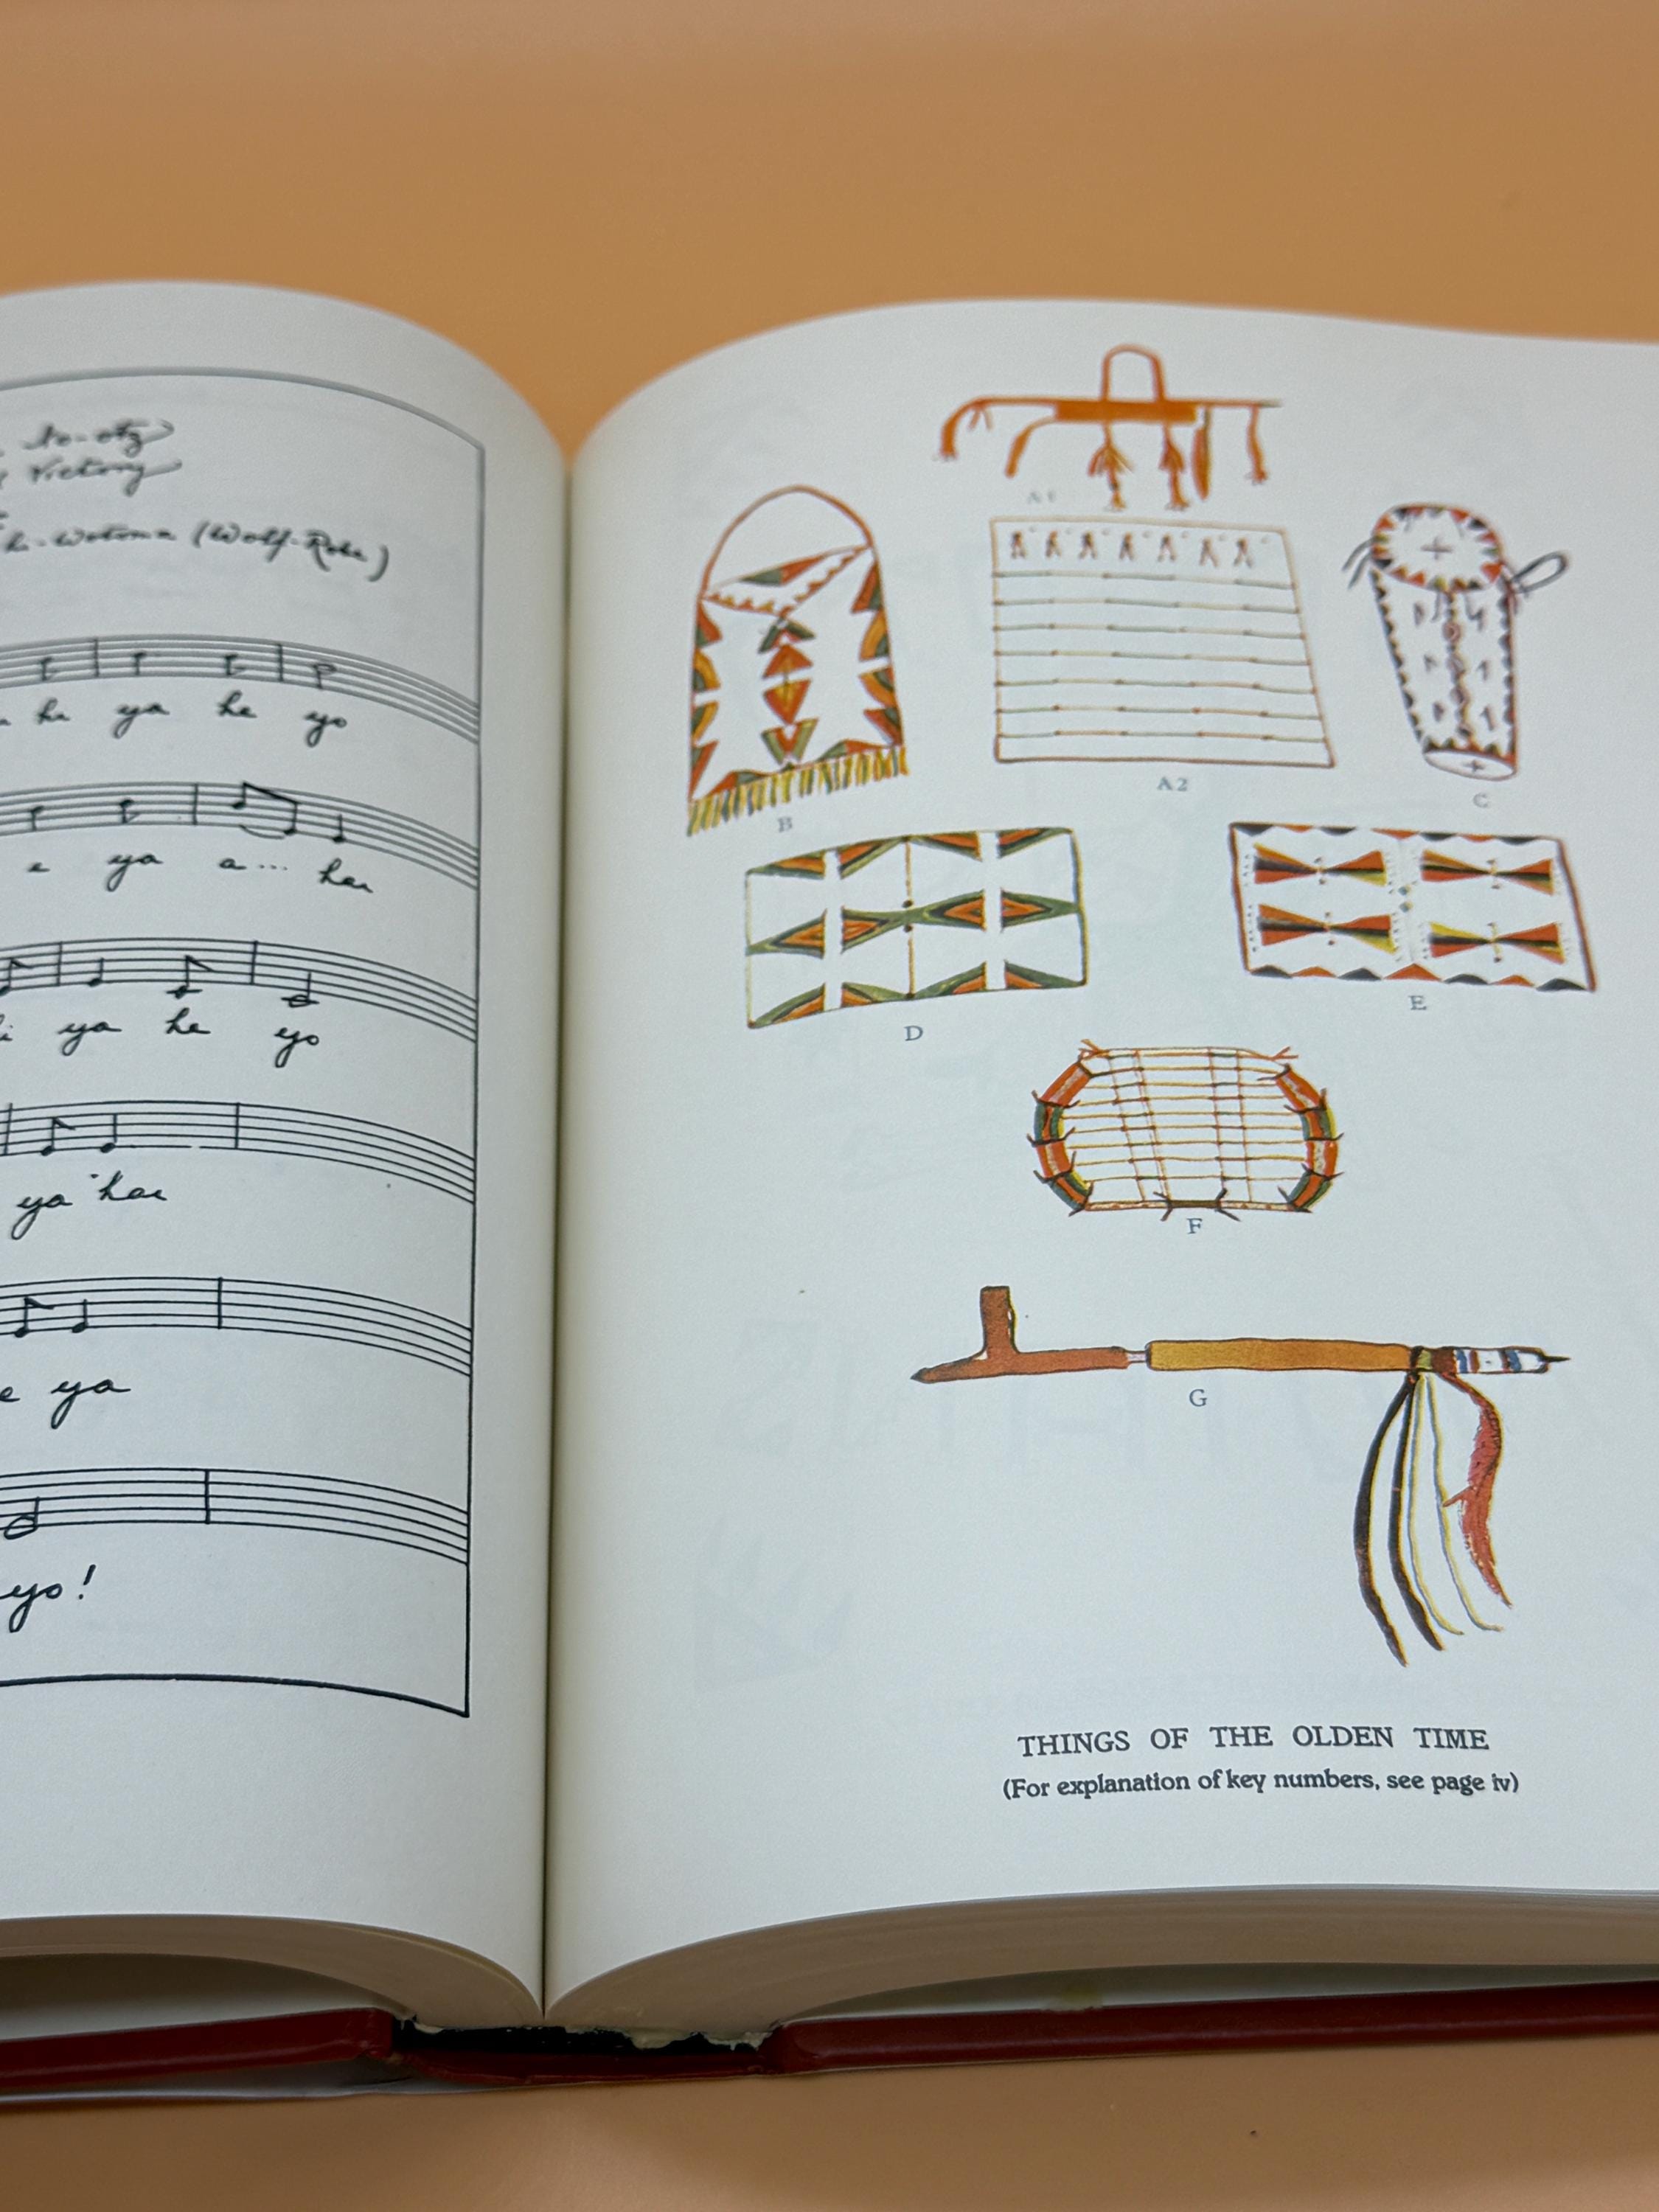 Victory
(Wolf-Robe)
he ya he yo
e ya a... hai
ya he yo
ya hai
ya
yo!
A1
A2
B
C
D
E
F
G
THINGS OF THE OLDEN TIME
(For explanation of key numbers, see page iv)